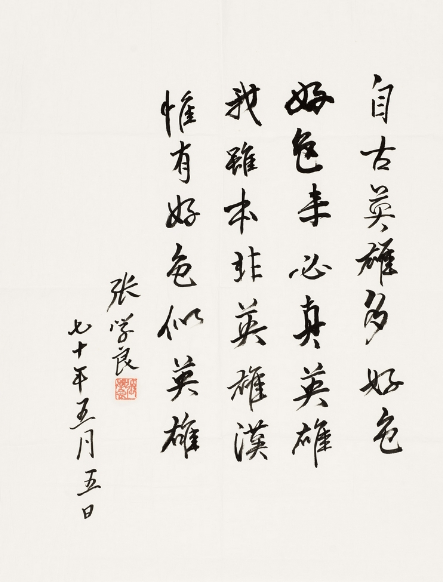 自古英雄多好色
好色未必真英雄
我雖本非英雄漢
惟有好色似英雄
張学良
七十年五月五日